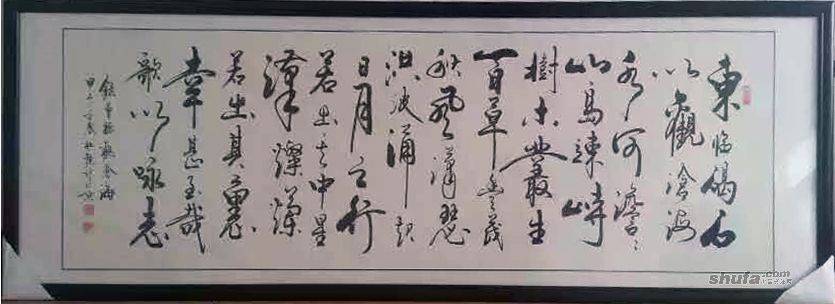 東臨碣石
以觀滄海
水何澹〻
山島竦峙
樹木叢生
百草豐茂
秋風蕭瑟
洪波涌起
日月之行
若出其中星
漢燦爛
若出其裏
幸甚至哉
歌以詠志
錄曹操觀滄海
甲午
shufa.com